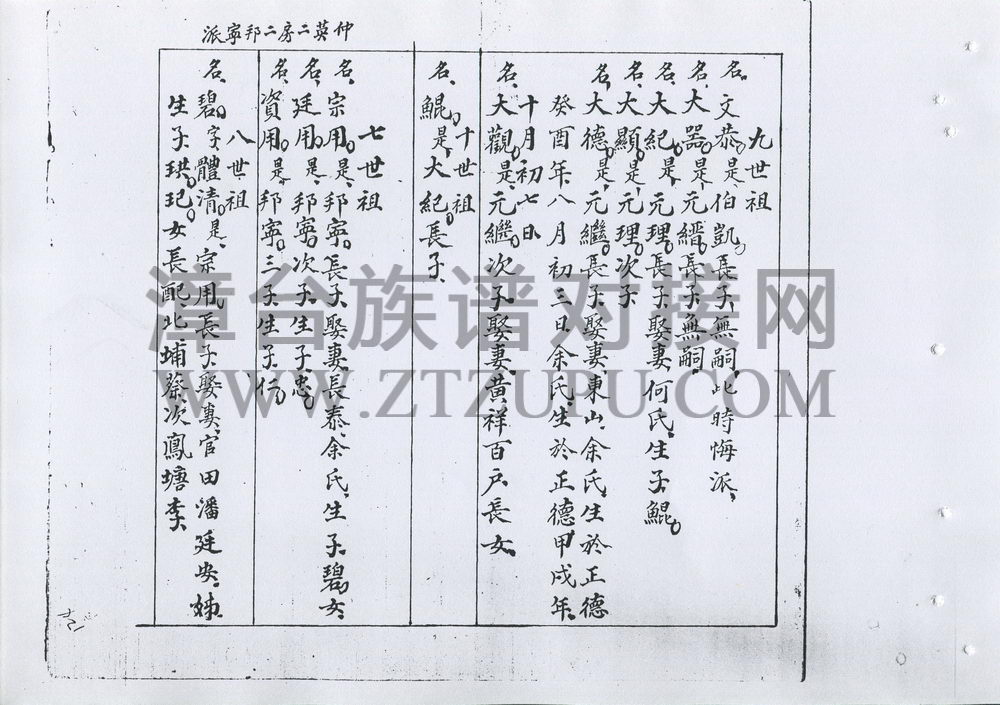 仲英二房二邦寧派
九世祖
名文恭是伯凱長子無嗣此時悔派
名大器是元縉長子無嗣
名大紀是元理長子娶妻何氏生子鯤
名大顯是元理次子
名大德是元繼長子娶妻東山余氏生於正德
癸酉年八月初三日余氏生於正德甲戌年
十月初七日
名大觀是元繼次子娶妻黃祥百戶長女
十世祖
名鯤是大紀長子
七世祖
名宗用是邦寧長子娶妻長泰余氏生子碧女
名廷用是邦寧次子生子忠
名資用是邦寧三子生子衍
八世祖
名碧字體清是宗用長子娶妻官田潘廷安姊
生子珙玘女長配北埔蔡次鳳塘李
漳台族谱对接网
WWW.ZTZUPU.COM